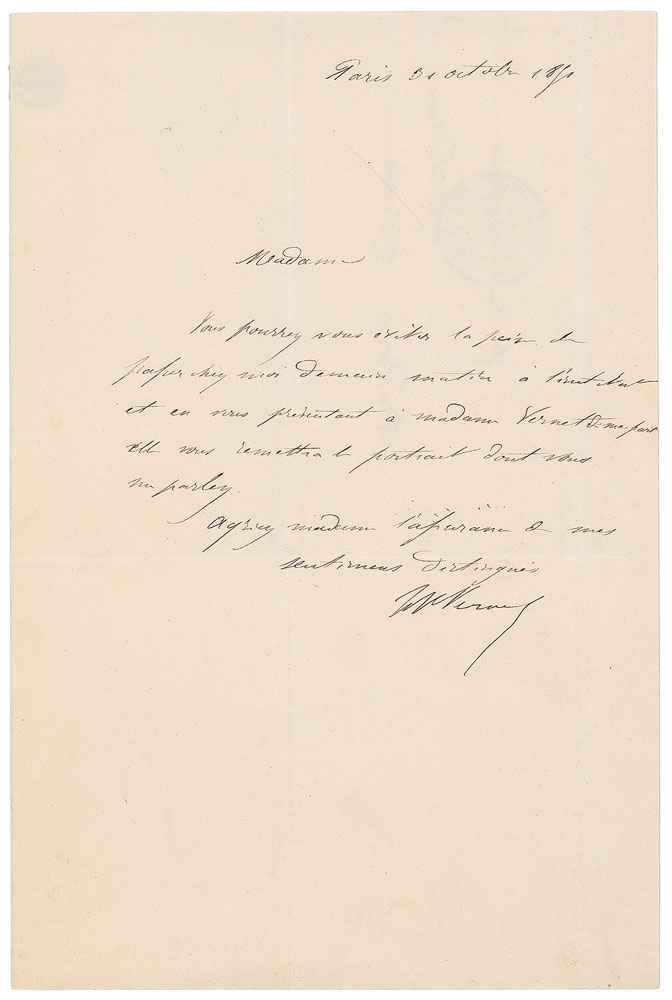 Paris 31 octobre 1851
Madame
Vous pourrez vous éviter la peine de
passer chez moi demain matin à l'institut
et en vous présentant à madame Vernet de ma part
elle vous remettra le portrait dont vous
me parlez.
Agriez madame l'assurance de mes
sentimens distingués
Vernet